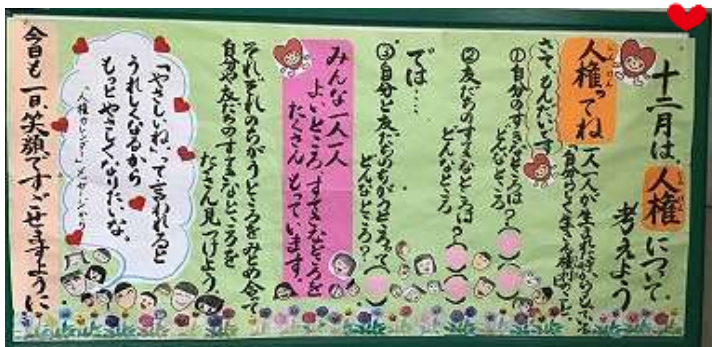 十二月は、人権について
じんけん
考えよう
人権ってね
じんけん
一人一人が生まれたときからもっている
「自分らしく生きる権利」のこと。
さて、もんだいです
①自分のすてきなところは?
どんなところ
②友だちのすてきなところは?
どんなところ
では…
③自分と友だちのちがうところって
どんなところ?
みんな一人一人
よいところ、すてきなところを
たくさん もっています。
それぞれのちがうところをみとめ合って
自分や友だちのすてきなところを
たくさん見つけよう。
「やさしいね」って言われると
うれしくなるから
もっとやさしくなりたいな。
今日も一日、笑顔ですごせますように